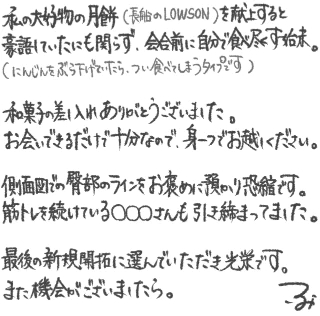 私の大好物の月餅(長船のLOWSON)を献上すると
豪語していたにも関らず、会合前に自分で食べ尽くす始末。
(にんじんをぶら下げていたら、つい食べてしまうタイプです)
和菓子の差し入れありがとうございました。
お会いできるだけで十分なので、身一つでお越しください。
側面図での臀部のラインをお褒めに預かり恐縮です。
筋トレを続けている○○○さんも引き締まってました。
最後の新規開拓に選んでいただき光栄です。
また機会がございましたら。